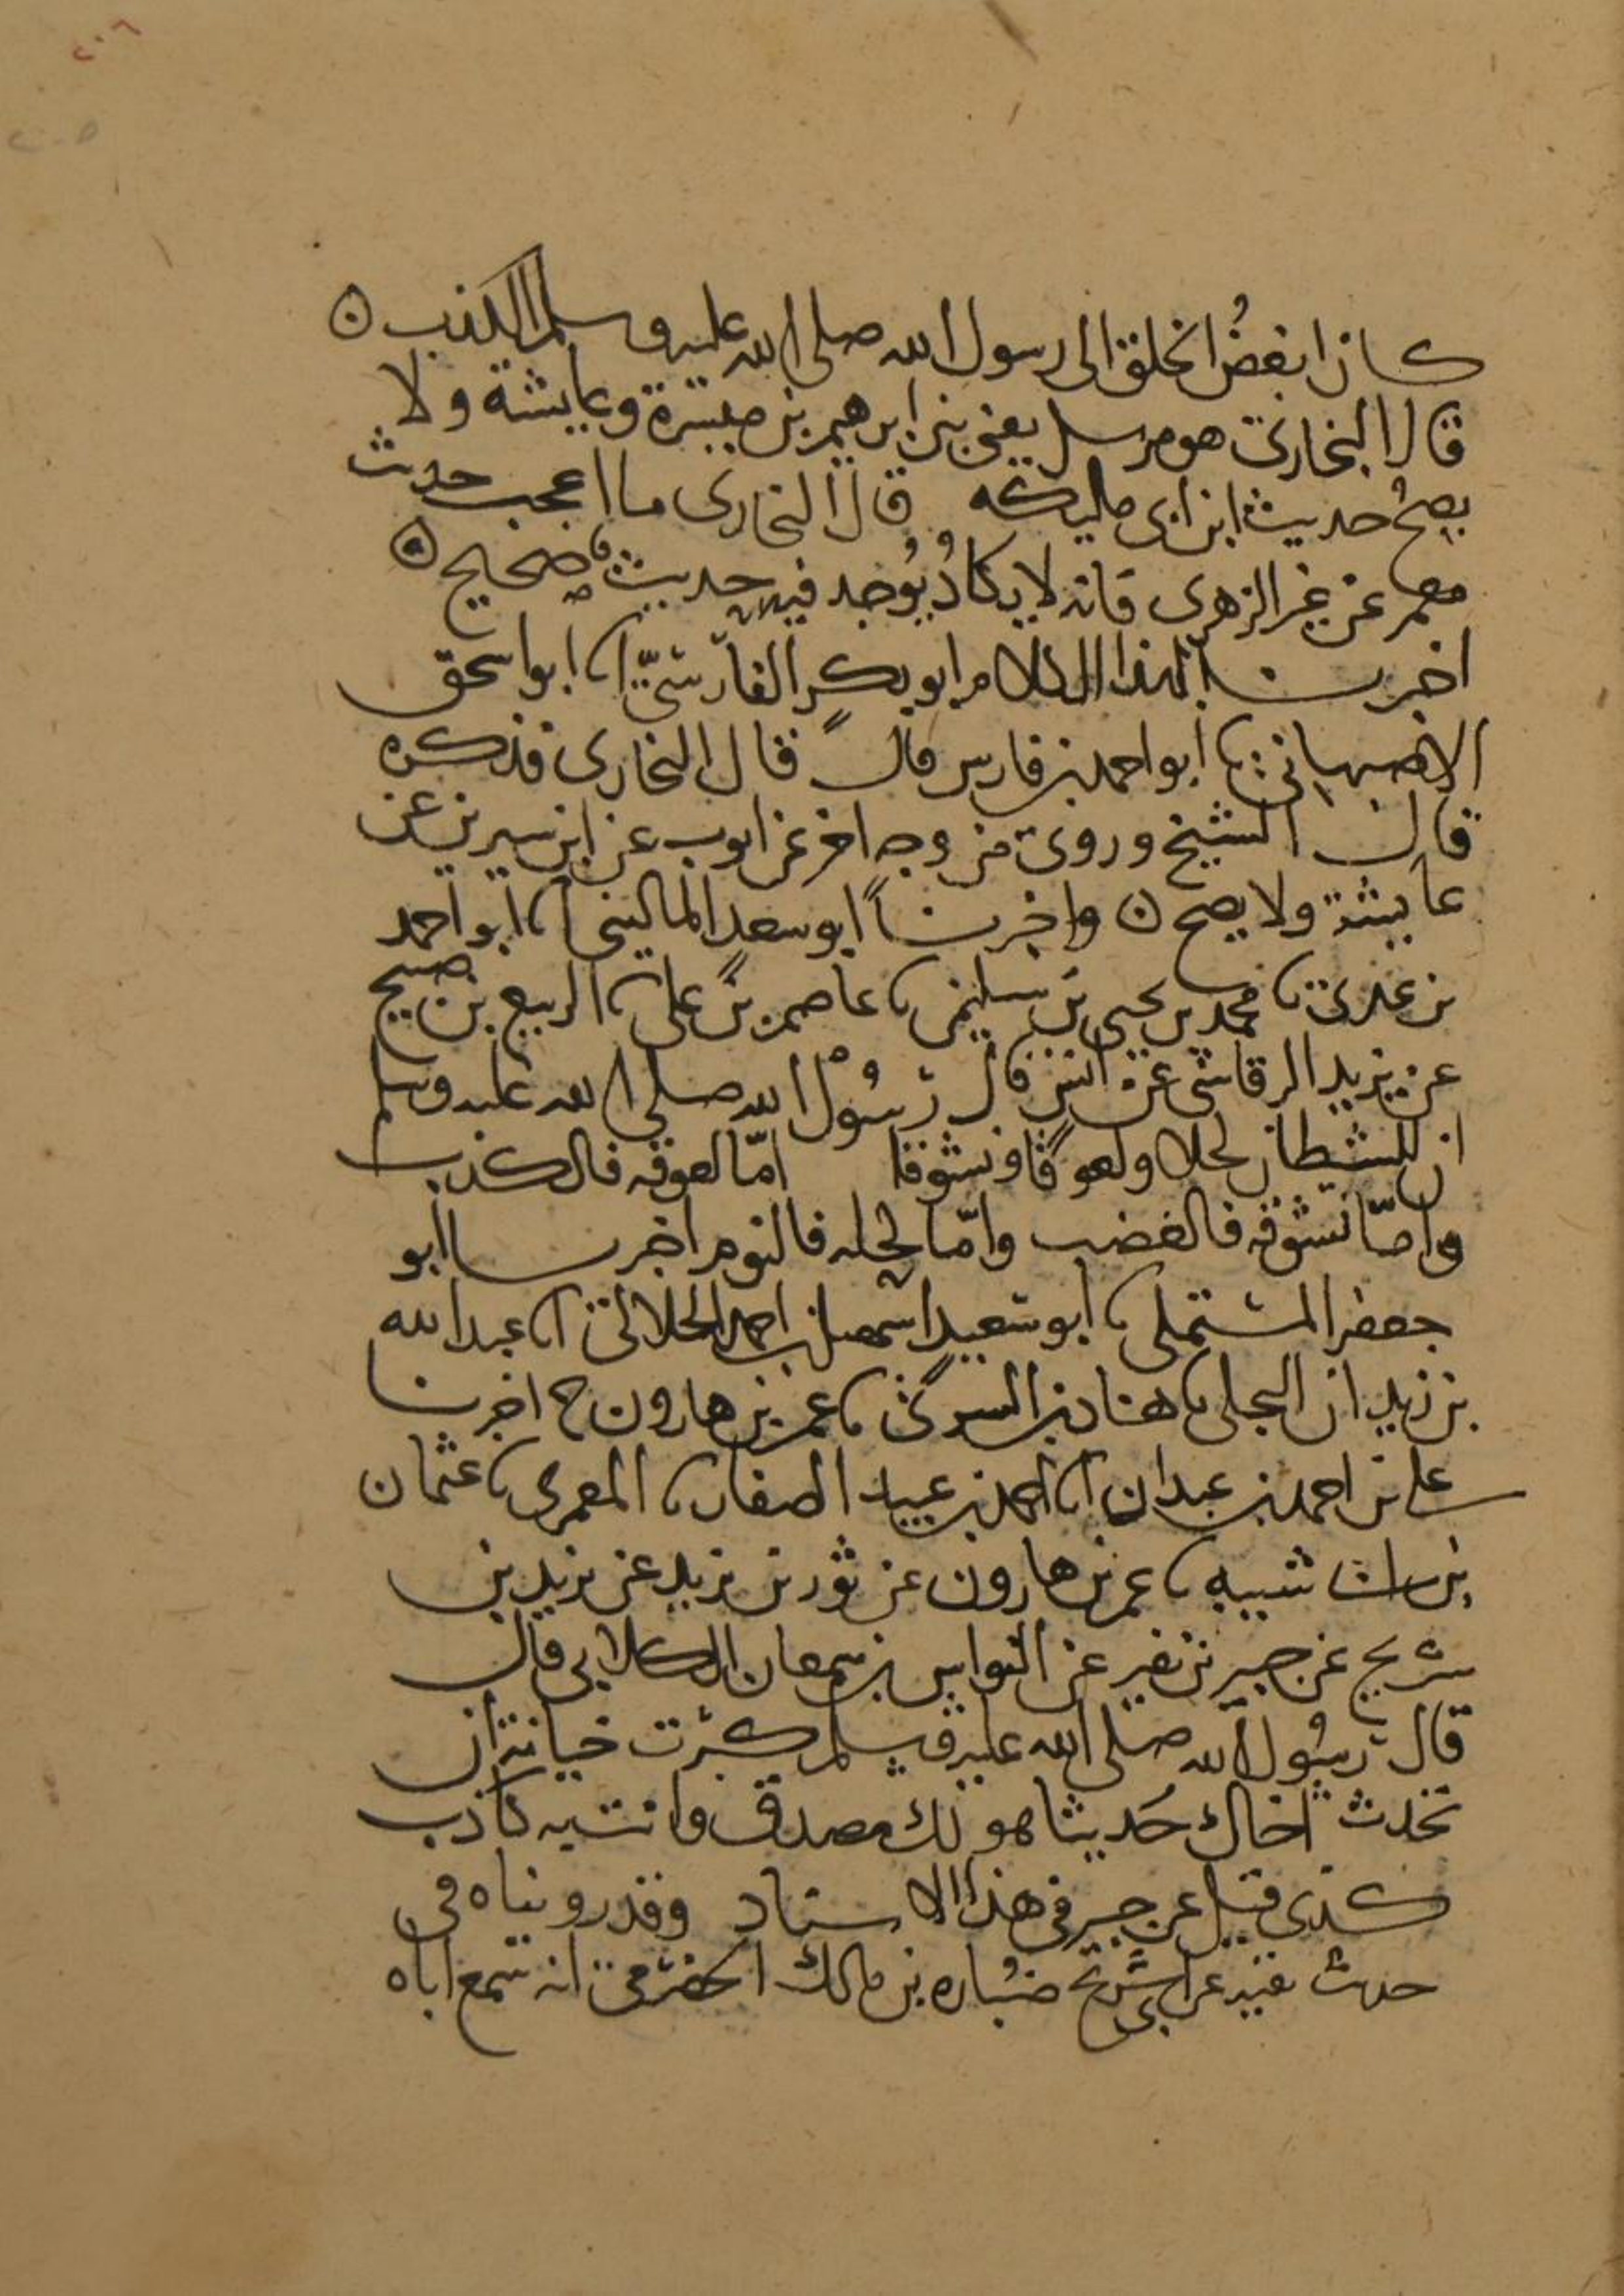 ٢٠٦
٢٠٥
كان ابغض الخلق الى رسول الله صلى الله عليه وسلم الكذب ٥
قال البخاري هو مرسل يعني بين ابرهيم بن ميسرة وعايشة ولا
يصح حديث ابن ابى مليكه قال البخارى ما اعجب حديث
معمر عن غير الزهرى فانه لا يكاد يوجد فيه حديث صحيح ٥
اخبرنا بهذا الكلام ابو بكر الفارسي انا ابو اسحق
الاصبهاني نا ابو احمد بن فارس قال قال البخارى فذكره
قال الشيخ وروى من وجه اخر عن ايوب عن ابن سيرين عن
عايشة ولا يصح ٥ واخبرنا ابو سعد المالينى انا ابو احمد
بن عدى نا محمد بن يحيى بن سليمن نا عاصم بن على نا الربيع بن صبيح
عن يزيد الرقاشى عن انس قال رسول الله صلى الله عليه وسلم
ان للشيطان لحلا ولعوقا ونشوقا اما لعوقه فالكذب
واما نشوقه فالغضب واما لحله فالنوم اخبرنا ابو
جعفر المستملى نا ابو سعيد اسمعيل بن احمد الخلالى انا عبد الله
بن زيدان البجلى نا هناد بن السرى نا عمر بن هارون ح اخبرنا
على بن احمد بن عبدان انا احمد بن عبيد الصفار نا المعمرى نا عثمان
بن ابى شيبه نا عمر بن هارون عن ثور بن يزيد عن يزيد بن
شريح عن جبير بن نفير عن النواس بن سمعان الكلابى قال
قال رسول الله صلى الله عليه وسلم كبرت خيانة ان
تحدث اخاك حديثا هو لك مصدق وانت به كاذب
كذى قيل عن جبير فى هذا الاسناد وقد رويناه فى
حديث بقيه عن ابى شريح ضباره بن مالك الحضرمى انه سمع اباه